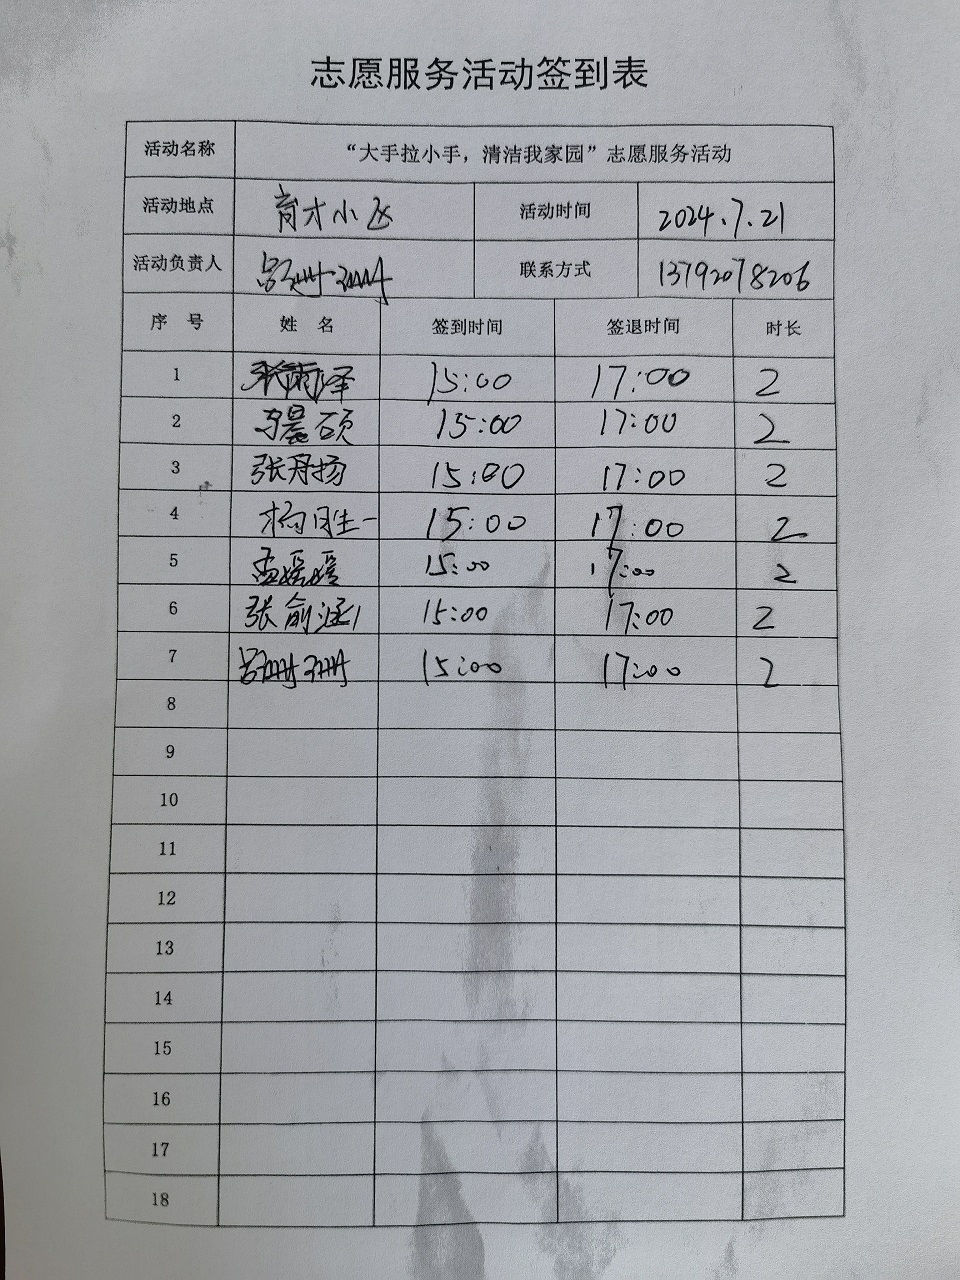 志愿服务活动签到表
活动名称 “大手拉小手，清洁我家园”志愿服务活动
活动地点 育才小区 活动时间 2024.7.21
活动负责人 吕珊珊 联系方式 13792078206
序 号 姓 名 签到时间 签退时间 时长
1 张雨泽 15:00 17:00 2
2 马晨硕 15:00 17:00 2
3 张丹扬 15:00 17:00 2
4 杨胜一 15:00 17:00 2
5 孟媛媛 15:00 17:00 2
6 张俞涵 15:00 17:00 2
7 吕珊珊 15:00 17:00 2
8
9
10
11
12
13
14
15
16
17
18